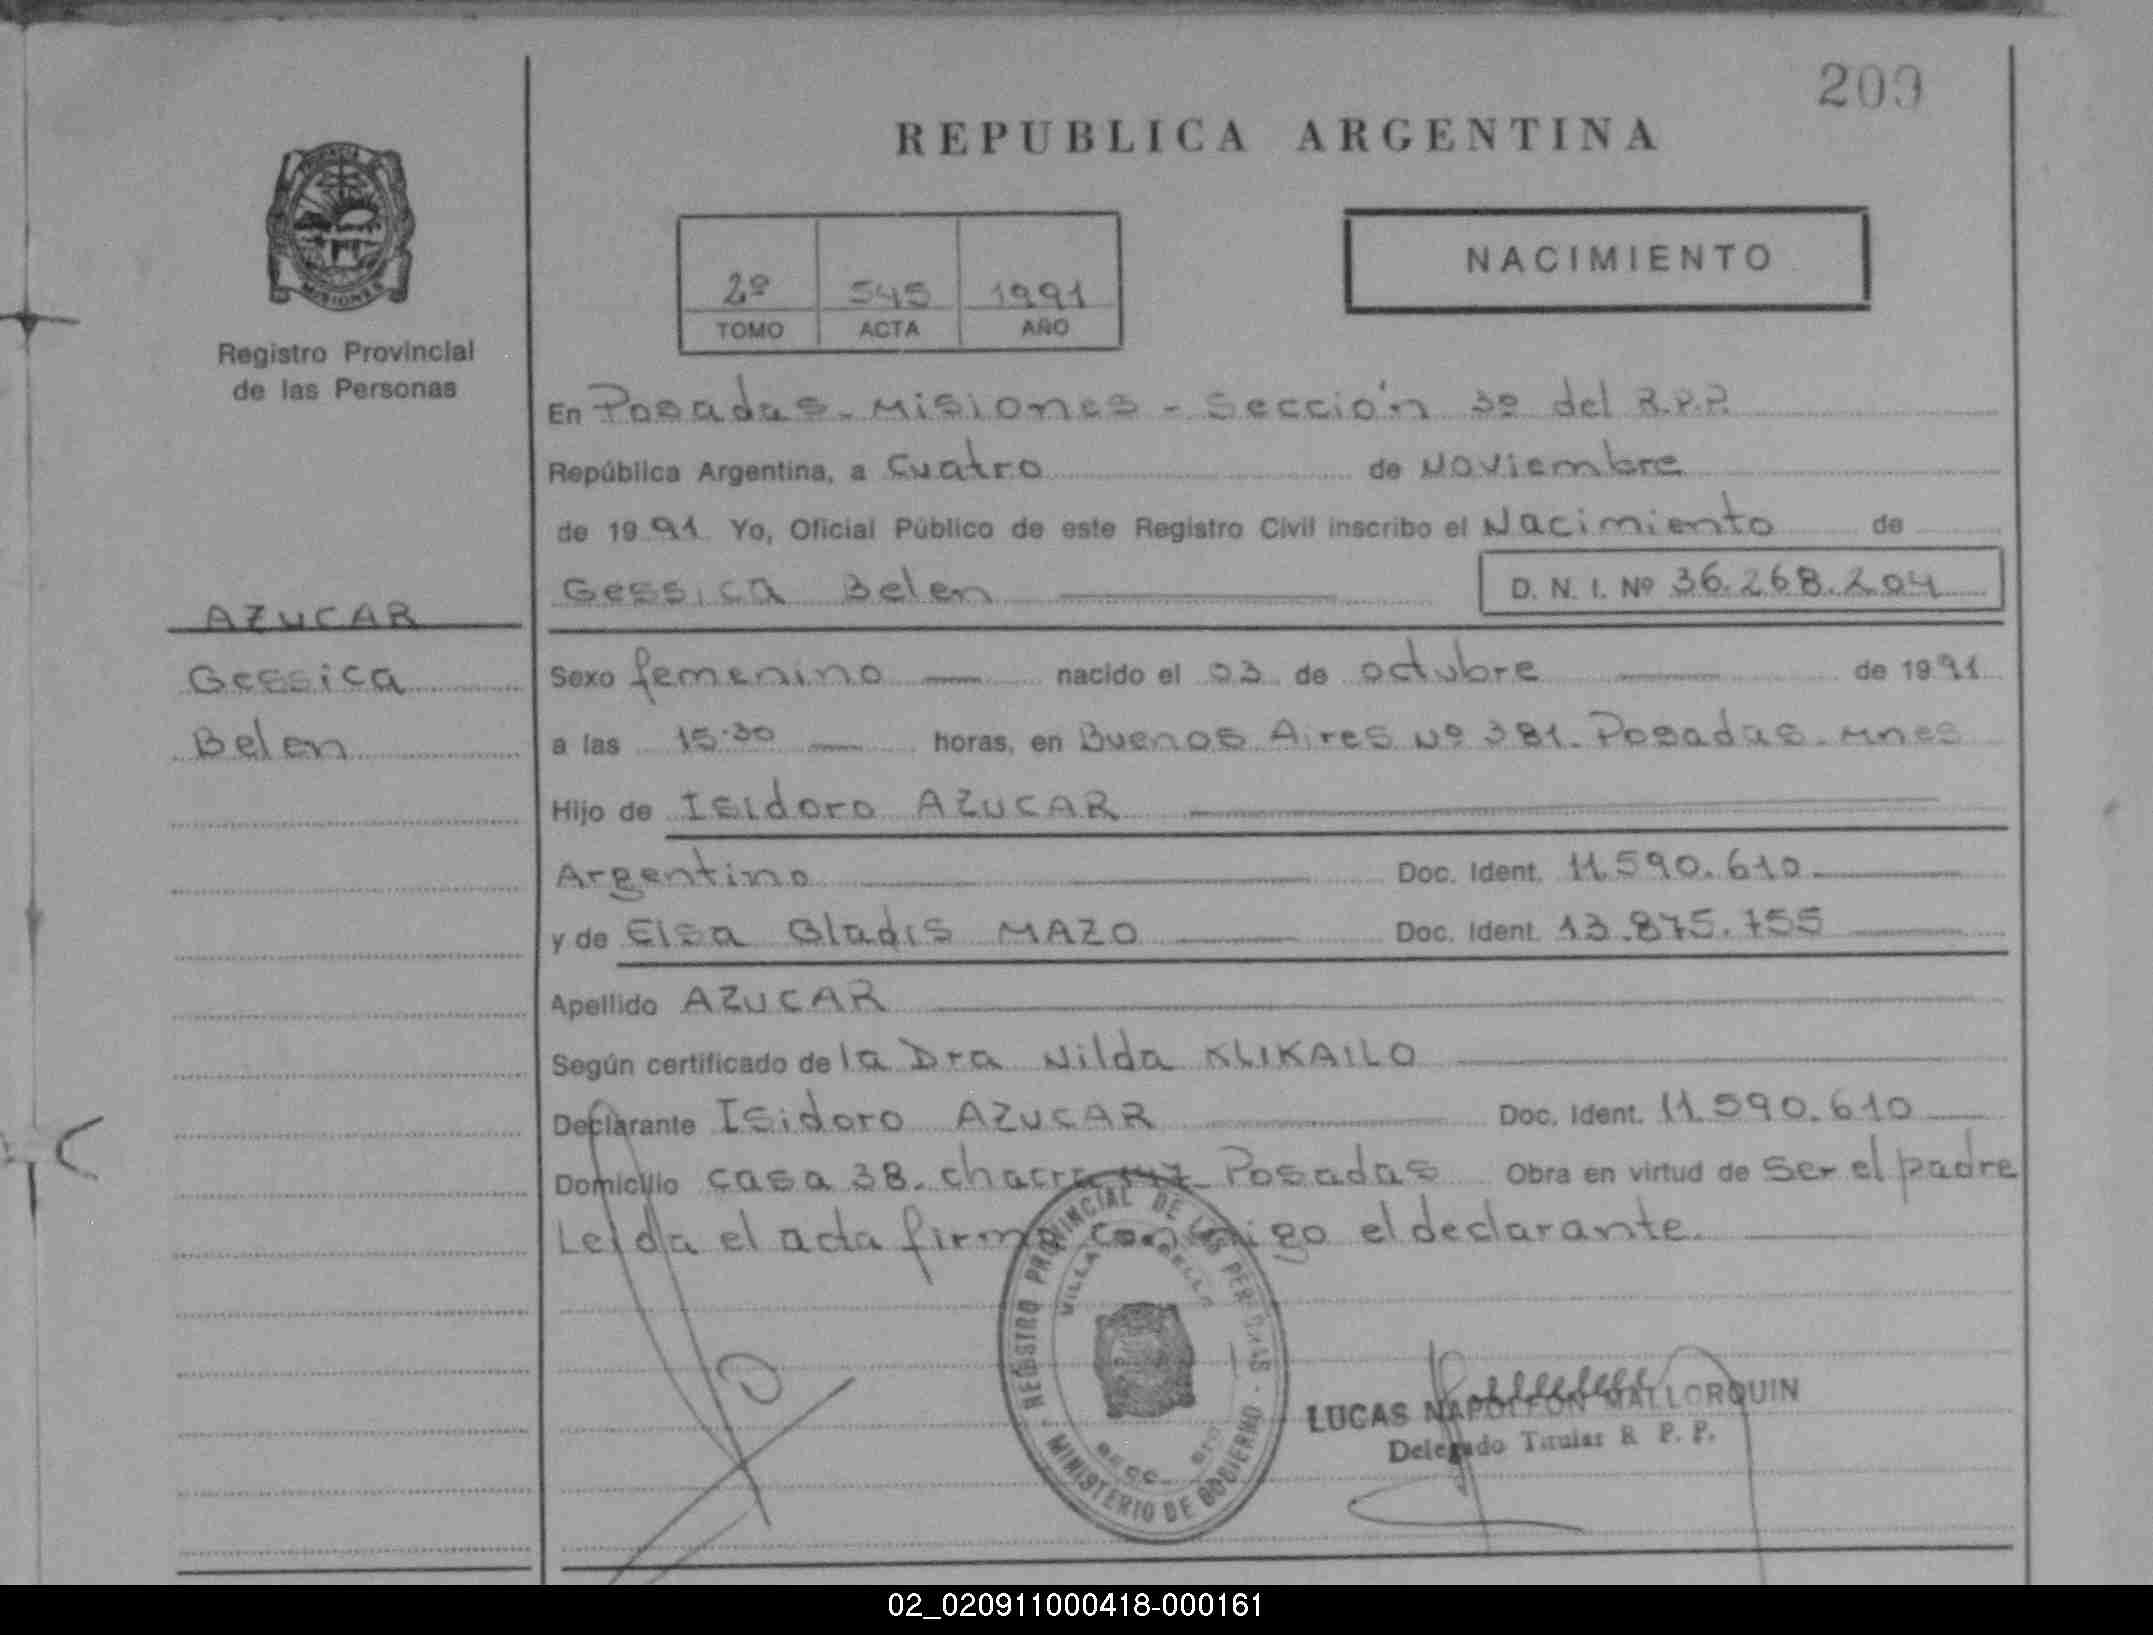 209
REPUBLICA ARGENTINA
MISIONES
2º 545 1991
TOMO ACTA AÑO
NACIMIENTO
Registro Provincial
de las Personas
En Posadas - Misiones - Sección 3º del R.P.P.
República Argentina, a Cuatro de Noviembre
de 1991 Yo, Oficial Público de este Registro Civil inscribo el Nacimiento de
Gessica Belen D. N. I. Nº 36.268.204
AZUCAR
Gessica
Belen
Sexo femenino nacido el 03 de octubre de 1991
a las 15:30 horas, en Buenos Aires Nº 381. Posadas. Mnes
Hijo de Isidoro AZUCAR
Argentino Doc. Ident. 11.590.610
y de Elsa Gladis MAZO Doc. Ident. 13.875.755
Apellido AZUCAR
Según certificado de la Dra Nilda KLIKAILO
Declarante Isidoro AZUCAR Doc. Ident. 11.590.610
Domicilio casa 38. chacra Posadas Obra en virtud de Ser el padre
Leida el acta firma conmigo el declarante.
REGISTRO PROVINCIAL DE LAS PERSONAS
MINISTERIO DE GOBIERNO
VILLA
LUCAS NAPOLEON MALLORQUIN
Delegado Titular R. P. P.
02_020911000418-000161